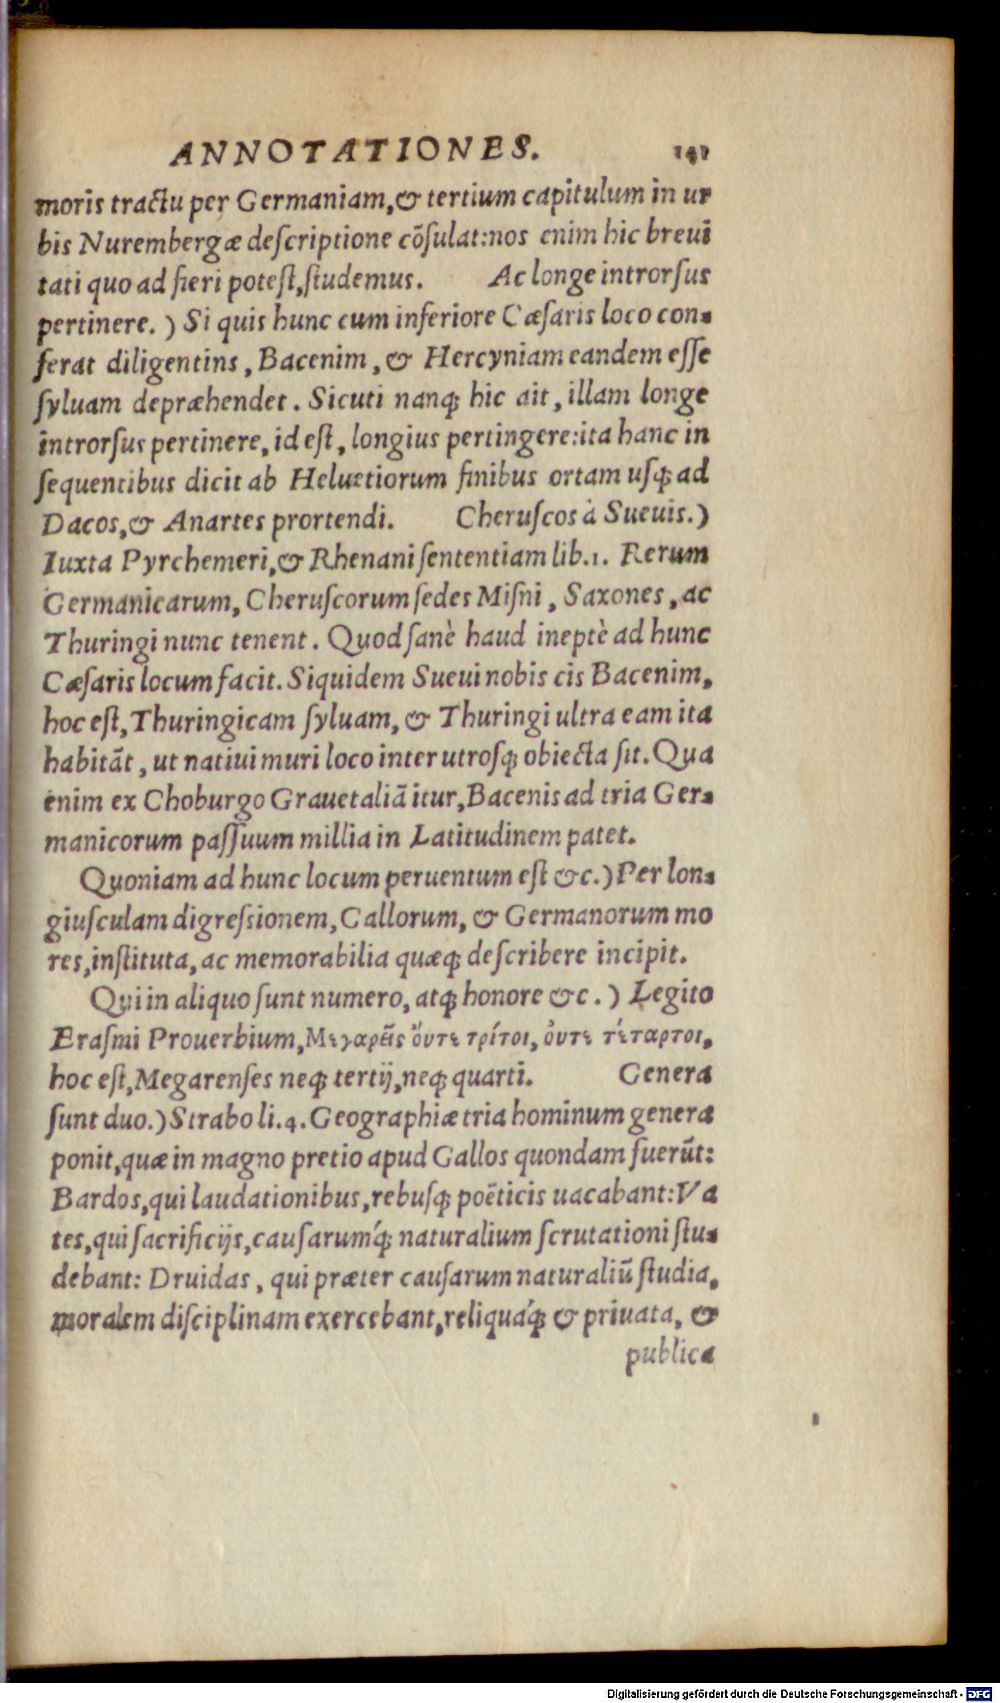 ANNOTATIONES. 141
moris tractu per Germaniam,& tertium capitulum in ur
bis Nurembergæ deſcriptione cõſulat:nos enim hic breui
tati quo ad fieri poteſt,ſtudemus. Ac longe introrſus
pertinere.) Si quis hunc cum inferiore Cæſaris loco con-
ferat diligentins, Bacenim, & Hercyniam eandem eſſe
ſyluam depræhendet. Sicuti nanq; hic ait, illam longe
introrſus pertinere, id eſt, longius pertingere:ita hanc in
ſequentibus dicit ab Heluetiorum finibus ortam uſq; ad
Dacos,& Anartes prortendi. Cheruſcos à Sueuis.)
Iuxta Pyrchemeri,& Rhenani ſententiam lib.1. Rerum
Germanicarum, Cheruſcorum ſedes Miſni, Saxones, ac
Thuringi nunc tenent. Quod ſanè haud ineptè ad hunc
Cæſaris locum facit. Siquidem Sueui nobis cis Bacenim,
hoc eſt, Thuringicam ſyluam, & Thuringi ultra eam ita
habitãt, ut natiui muri loco inter utroſq; obiecta ſit. Qua
enim ex Choburgo Grauetaliã itur, Bacenis ad tria Ger-
manicorum paſſuum millia in Latitudinem patet.
Quoniam ad hunc locum peruentum eſt &c.) Per lon-
giuſculam digreſsionem, Gallorum, & Germanorum mo
res,inſtituta, ac memorabilia quæq; deſcribere incipit.
Qui in aliquo ſunt numero, atq; honore &c.) Legito
Eraſmi Prouerbium, Μεγαρεῖς ὄυτε τρίτοι, ὄυτε τέταρτοι,
hoc eſt, Megarenſes neq; tertij,neq; quarti. Genera
ſunt duo.) Strabo li.4. Geographiæ tria hominum genera
ponit,quæ in magno pretio apud Gallos quondam fuerũt:
Bardos,qui laudationibus, rebuſq; poëticis uacabant: Va
tes,qui ſacrificijs,cauſarumq́; naturalium ſcrutationi ſtu-
debant: Druidas, qui præter cauſarum naturaliũ ſtudia,
moralem diſciplinam exercebant,reliquaq́; & priuata, &
publica
Digitalisierung gefördert durch die Deutsche Forschungsgemeinschaft - DFG